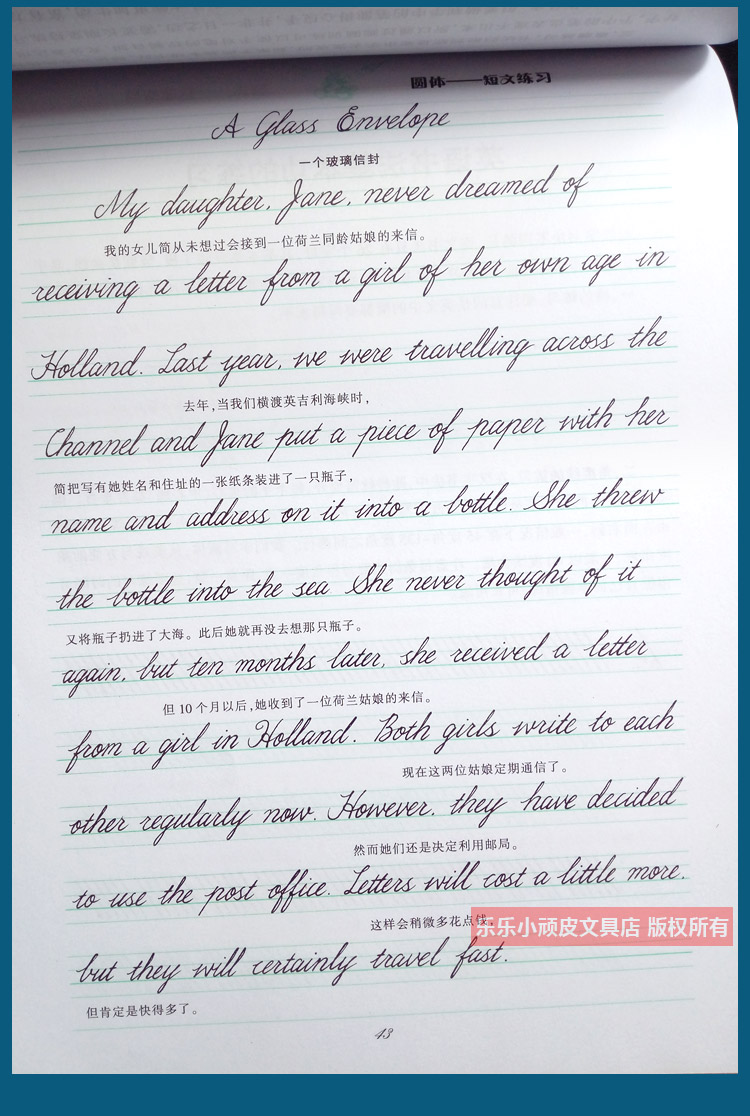 圆体——短文练习
A Glass Envelope
一个玻璃信封
My daughter, Jane, never dreamed of
我的女儿简从未想过会接到一位荷兰同龄姑娘的来信。
receiving a letter from a girl of her own age in
Holland. Last year, we were travelling across the
去年,当我们横渡英吉利海峡时,
Channel and Jane put a piece of paper with her
简把写有她姓名和住址的一张纸条装进了一只瓶子,
name and address on it into a bottle. She threw
the bottle into the sea She never thought of it
又将瓶子扔进了大海。此后她就再没去想那只瓶子。
again, but ten months later, she received a letter
但 10 个月以后,她收到了一位荷兰姑娘的来信。
from a girl in Holland. Both girls write to each
现在这两位姑娘定期通信了。
other regularly now. However, they have decided
然而她们还是决定利用邮局。
to use the post office. Letters will cost a little more,
这样会稍微多花点钱,
乐乐小顽皮文具店 版权所有
but they will certainly travel fast.
但肯定是快得多了。
43